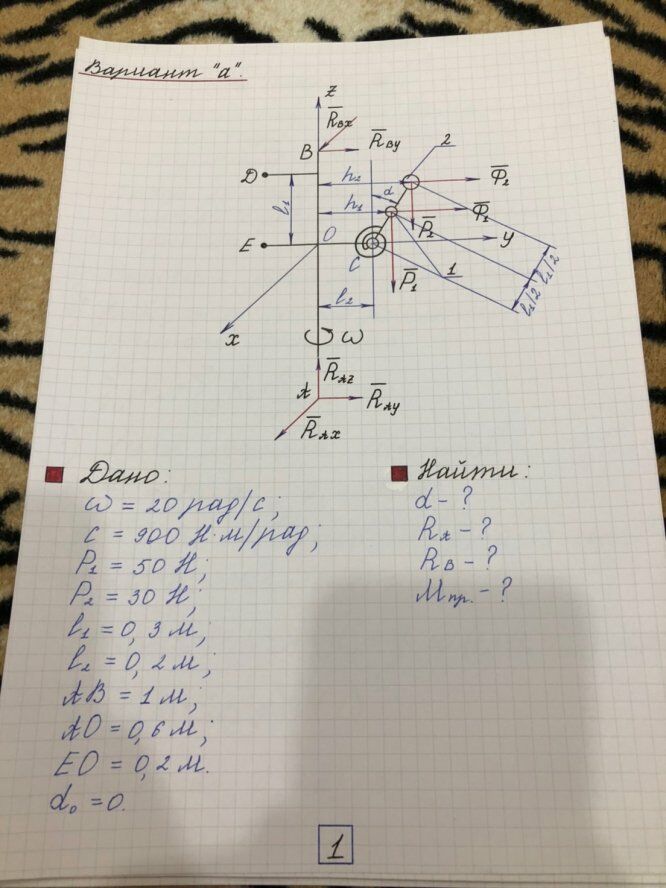 Вариант "а".
z
R̅Bx
R̅By
B
2
D
h₂
α
Φ̅₂
l₁
h₁
Φ̅₁
P̅₂
E
O
y
C
P̅₁
1
l₁/2
l₁/2
l₂
x
ω
R̅Az
A
R̅Ay
R̅Ax
Дано:
ω = 20 рад/с;
c = 900 Н·м/рад;
P₁ = 50 Н;
P₂ = 30 Н;
l₁ = 0,3 м;
l₂ = 0,2 м;
AB = 1 м;
AO = 0,6 м;
EO = 0,2 м.
α₀ = 0.
Найти:
α - ?
RA - ?
RB - ?
Mпр. - ?
1